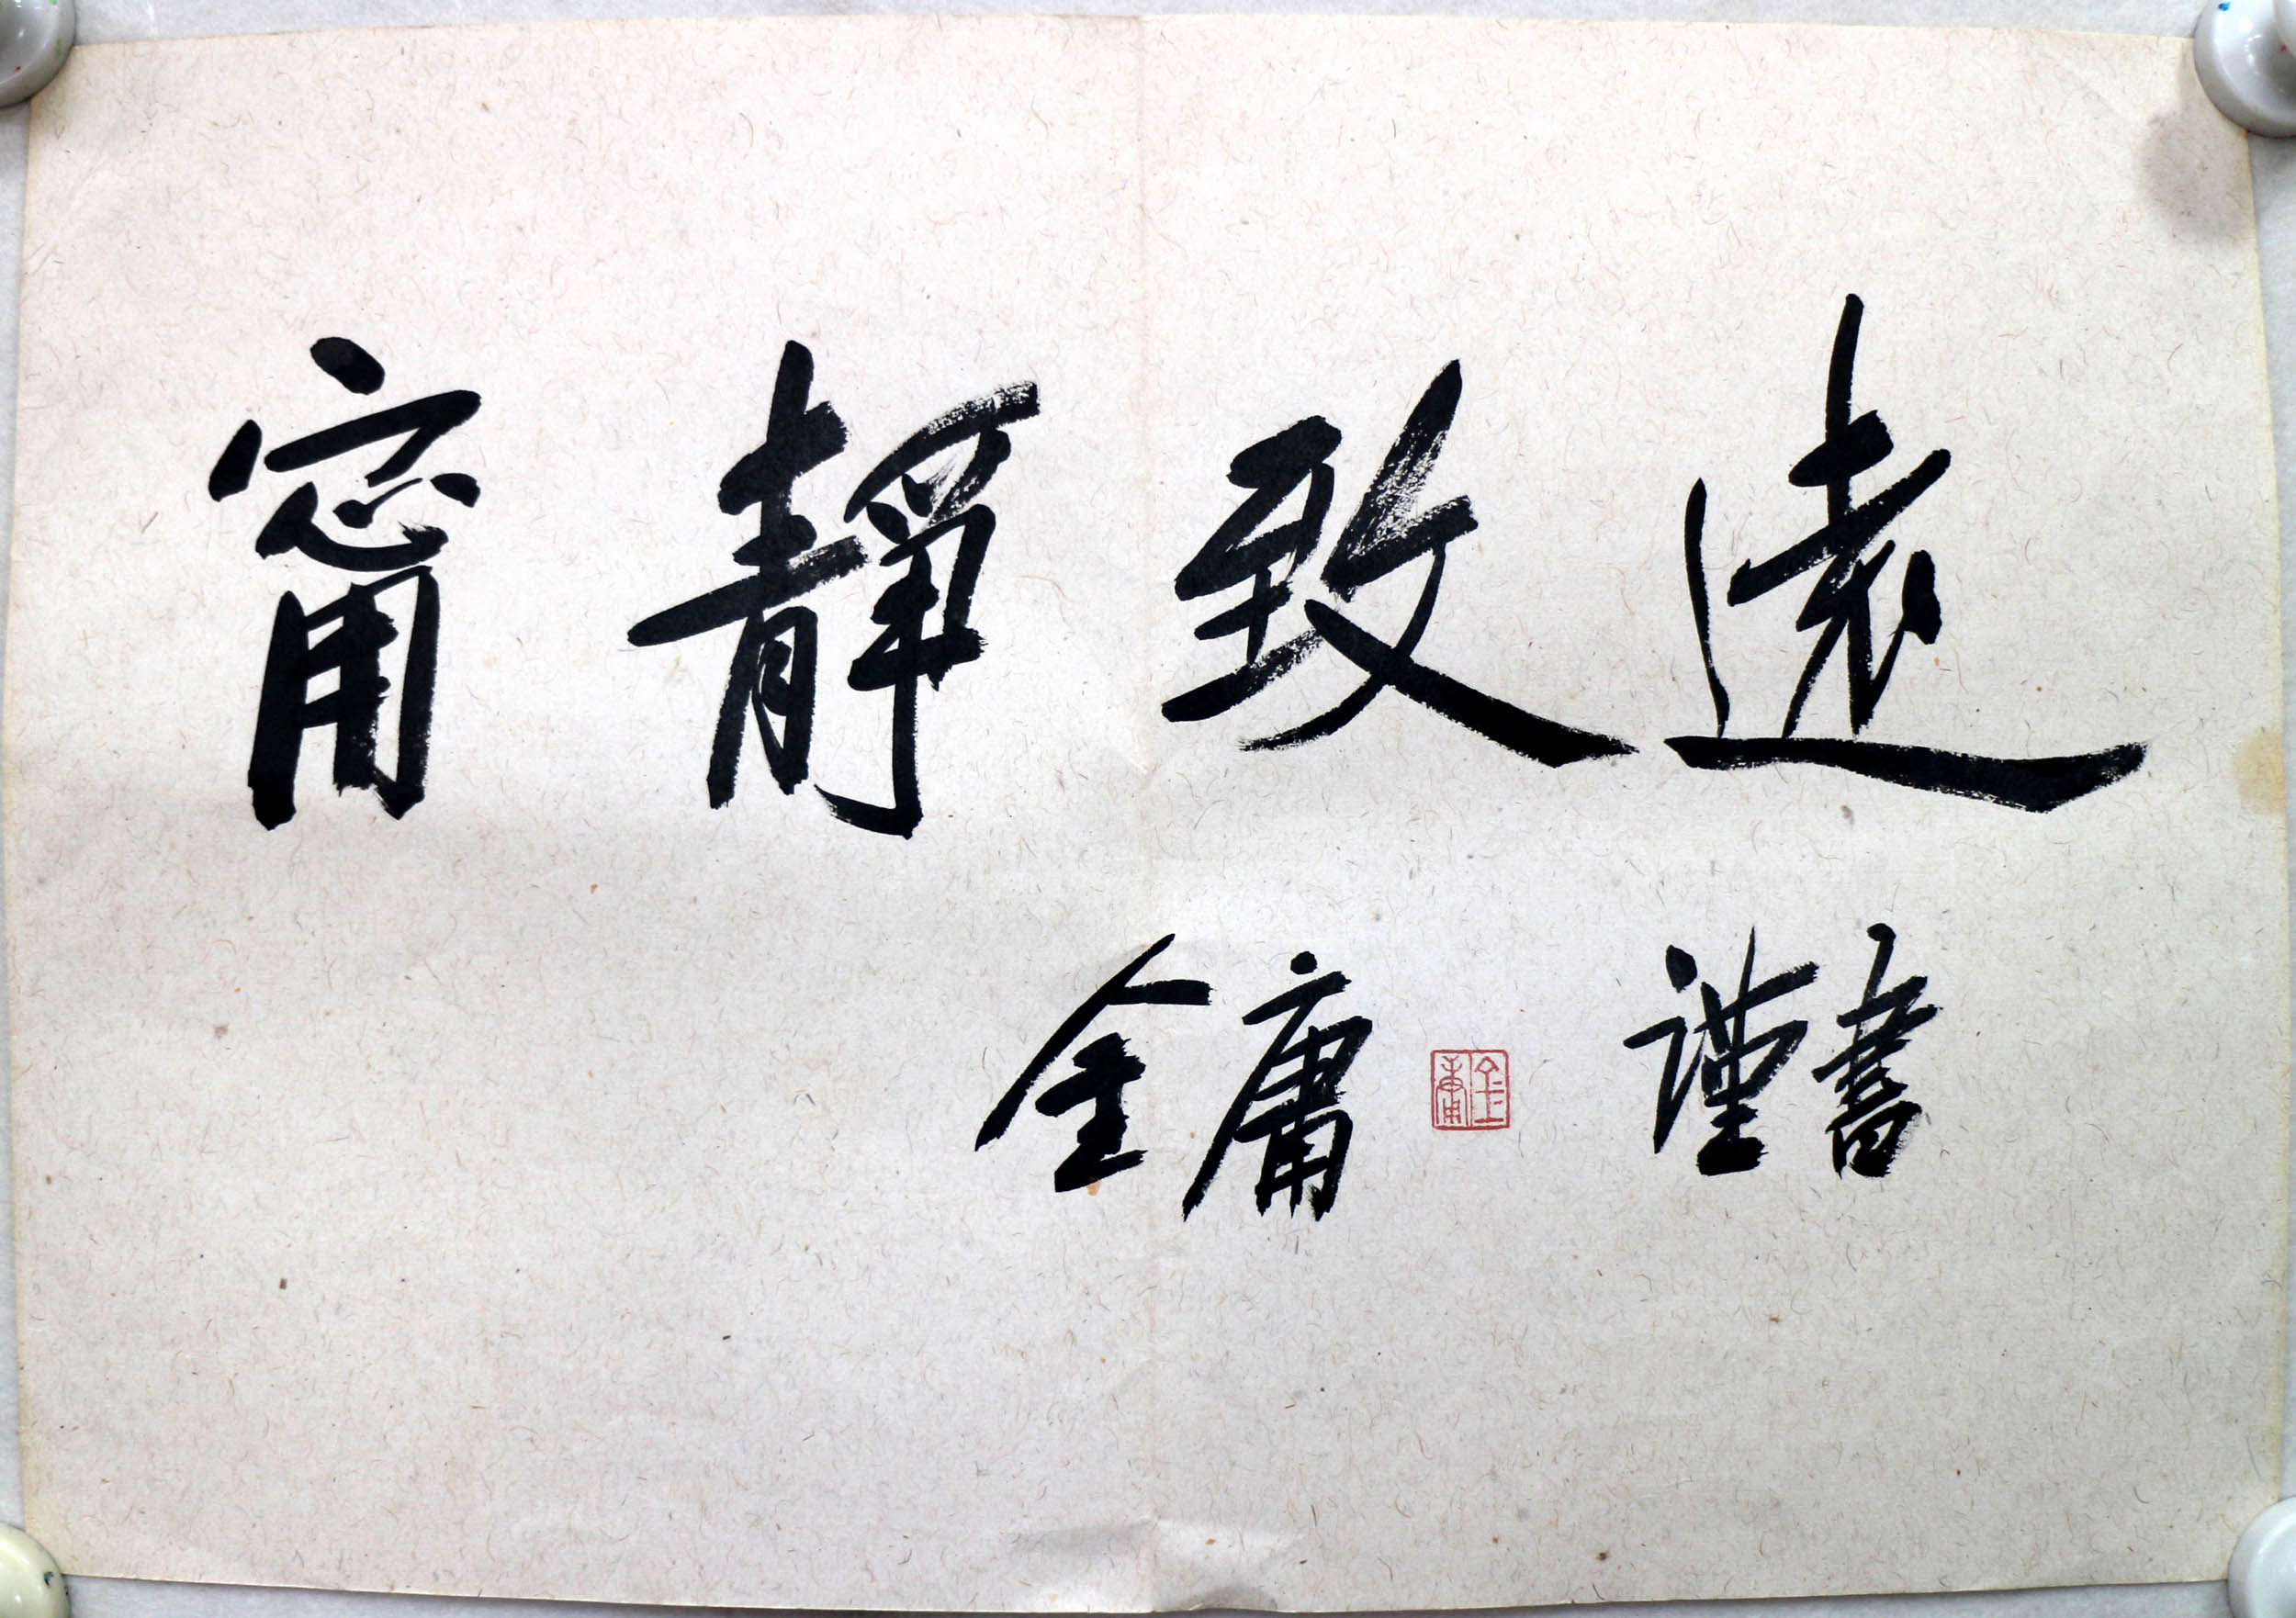 甯靜致遠
金庸 金庸 謹書